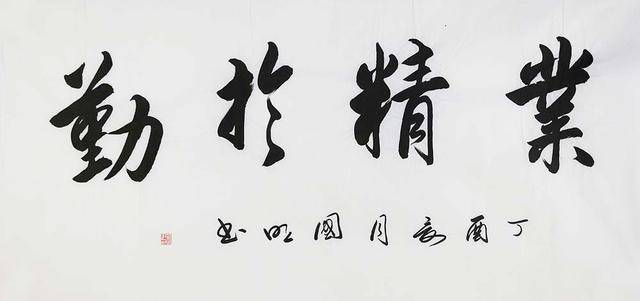 業精於勤
丁酉亥月國明書